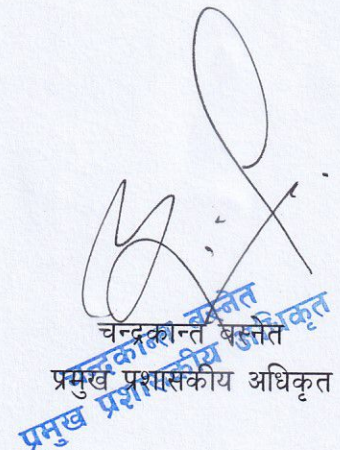 चन्द्रकान्त बस्नेत
प्रमुख प्रशासकीय अधिकृत
चन्द्रकान्त बस्नेत
प्रमुख प्रशासकीय अधिकृत